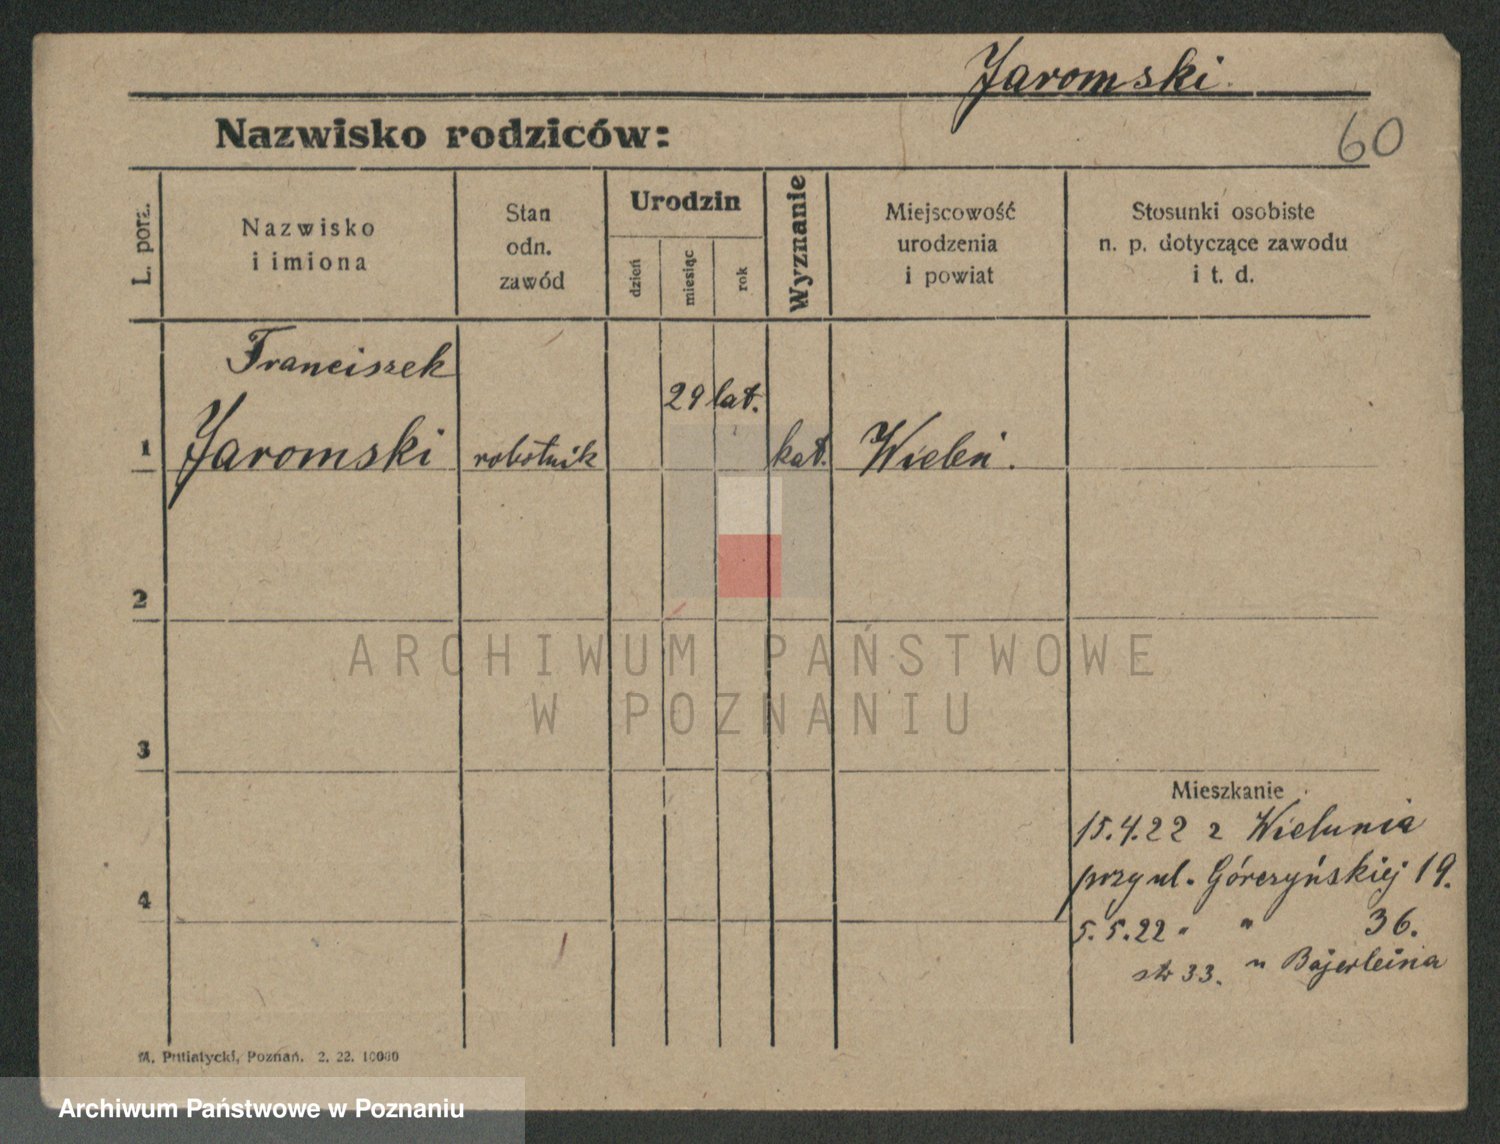 Jaromski.
60
Nazwisko rodziców:
L. porz.
Nazwisko
i imiona
Stan
odn.
zawód
Urodzin
dzień
miesiąc
rok
Wyznanie
Miejscowość
urodzenia
i powiat
Stosunki osobiste
n. p. dotyczące zawodu
i t. d.
Franciszek
29 lat.
1 Jaromski robotnik kat. Wieluń.
2
ARCHIWUM PAŃSTWOWE
W POZNANIU
3
Mieszkanie
15.4.22 z Wielunia
przy ul. Górczyńskiej 19.
4
5.5.22 " " 36.
str 33. u Bajerleina
M. Putiatycki, Poznań. 2. 22. 10000
Archiwum Państwowe w Poznaniu